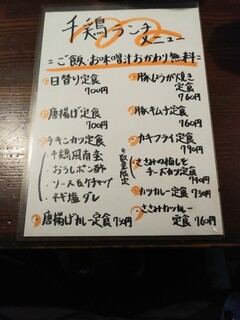 千鶏ランチ
メニュー
=ご飯・お味噌汁おかわり無料=
日替り定食
700円
唐揚げ定食
700円
チキンカツ定食
千鶏風南蛮
おろしポン酢
ソース&ケチャップ
ネギ塩ダレ
唐揚げカレー定食 750円
豚しょうが焼き
定食
760円
豚キムチ定食
760円
カキフライ定食
790円
※数量限定
ささみの梅しそ
チーズカツ定食
790円
カツカレー定食 750円
ささみカツカレー
定食 760円